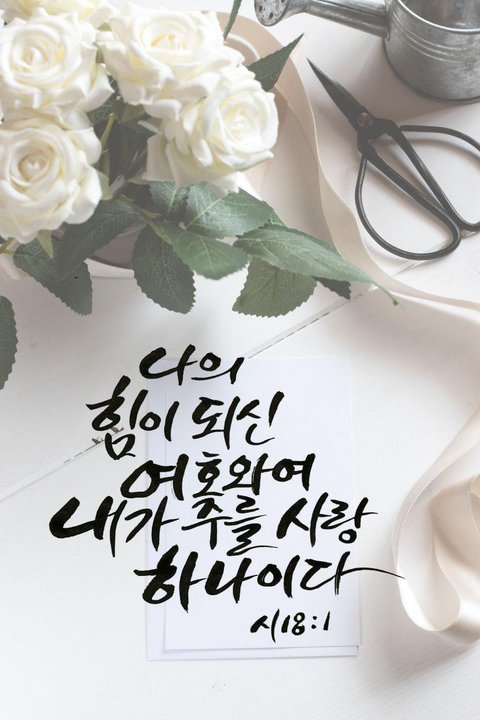 나의
힘이 되신
여호와여
내가 주를 사랑
하나이다
시18:1